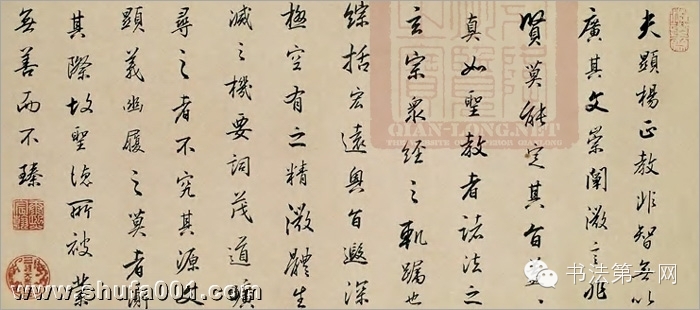 夫顯揚正教非智無以
廣其文崇闡微言非
賢莫能定其旨蓋
真如聖教者諸法之
玄宗眾經之軌躅也
綜括宏遠奧旨遐深
極空有之精微體生
滅之機要詞茂道曠
尋之者不究其源文
顯義幽履之莫者測
其際故聖德所被業
無善而不臻
QIAN-LONG.NET
www.shufa001.com
书法第一网